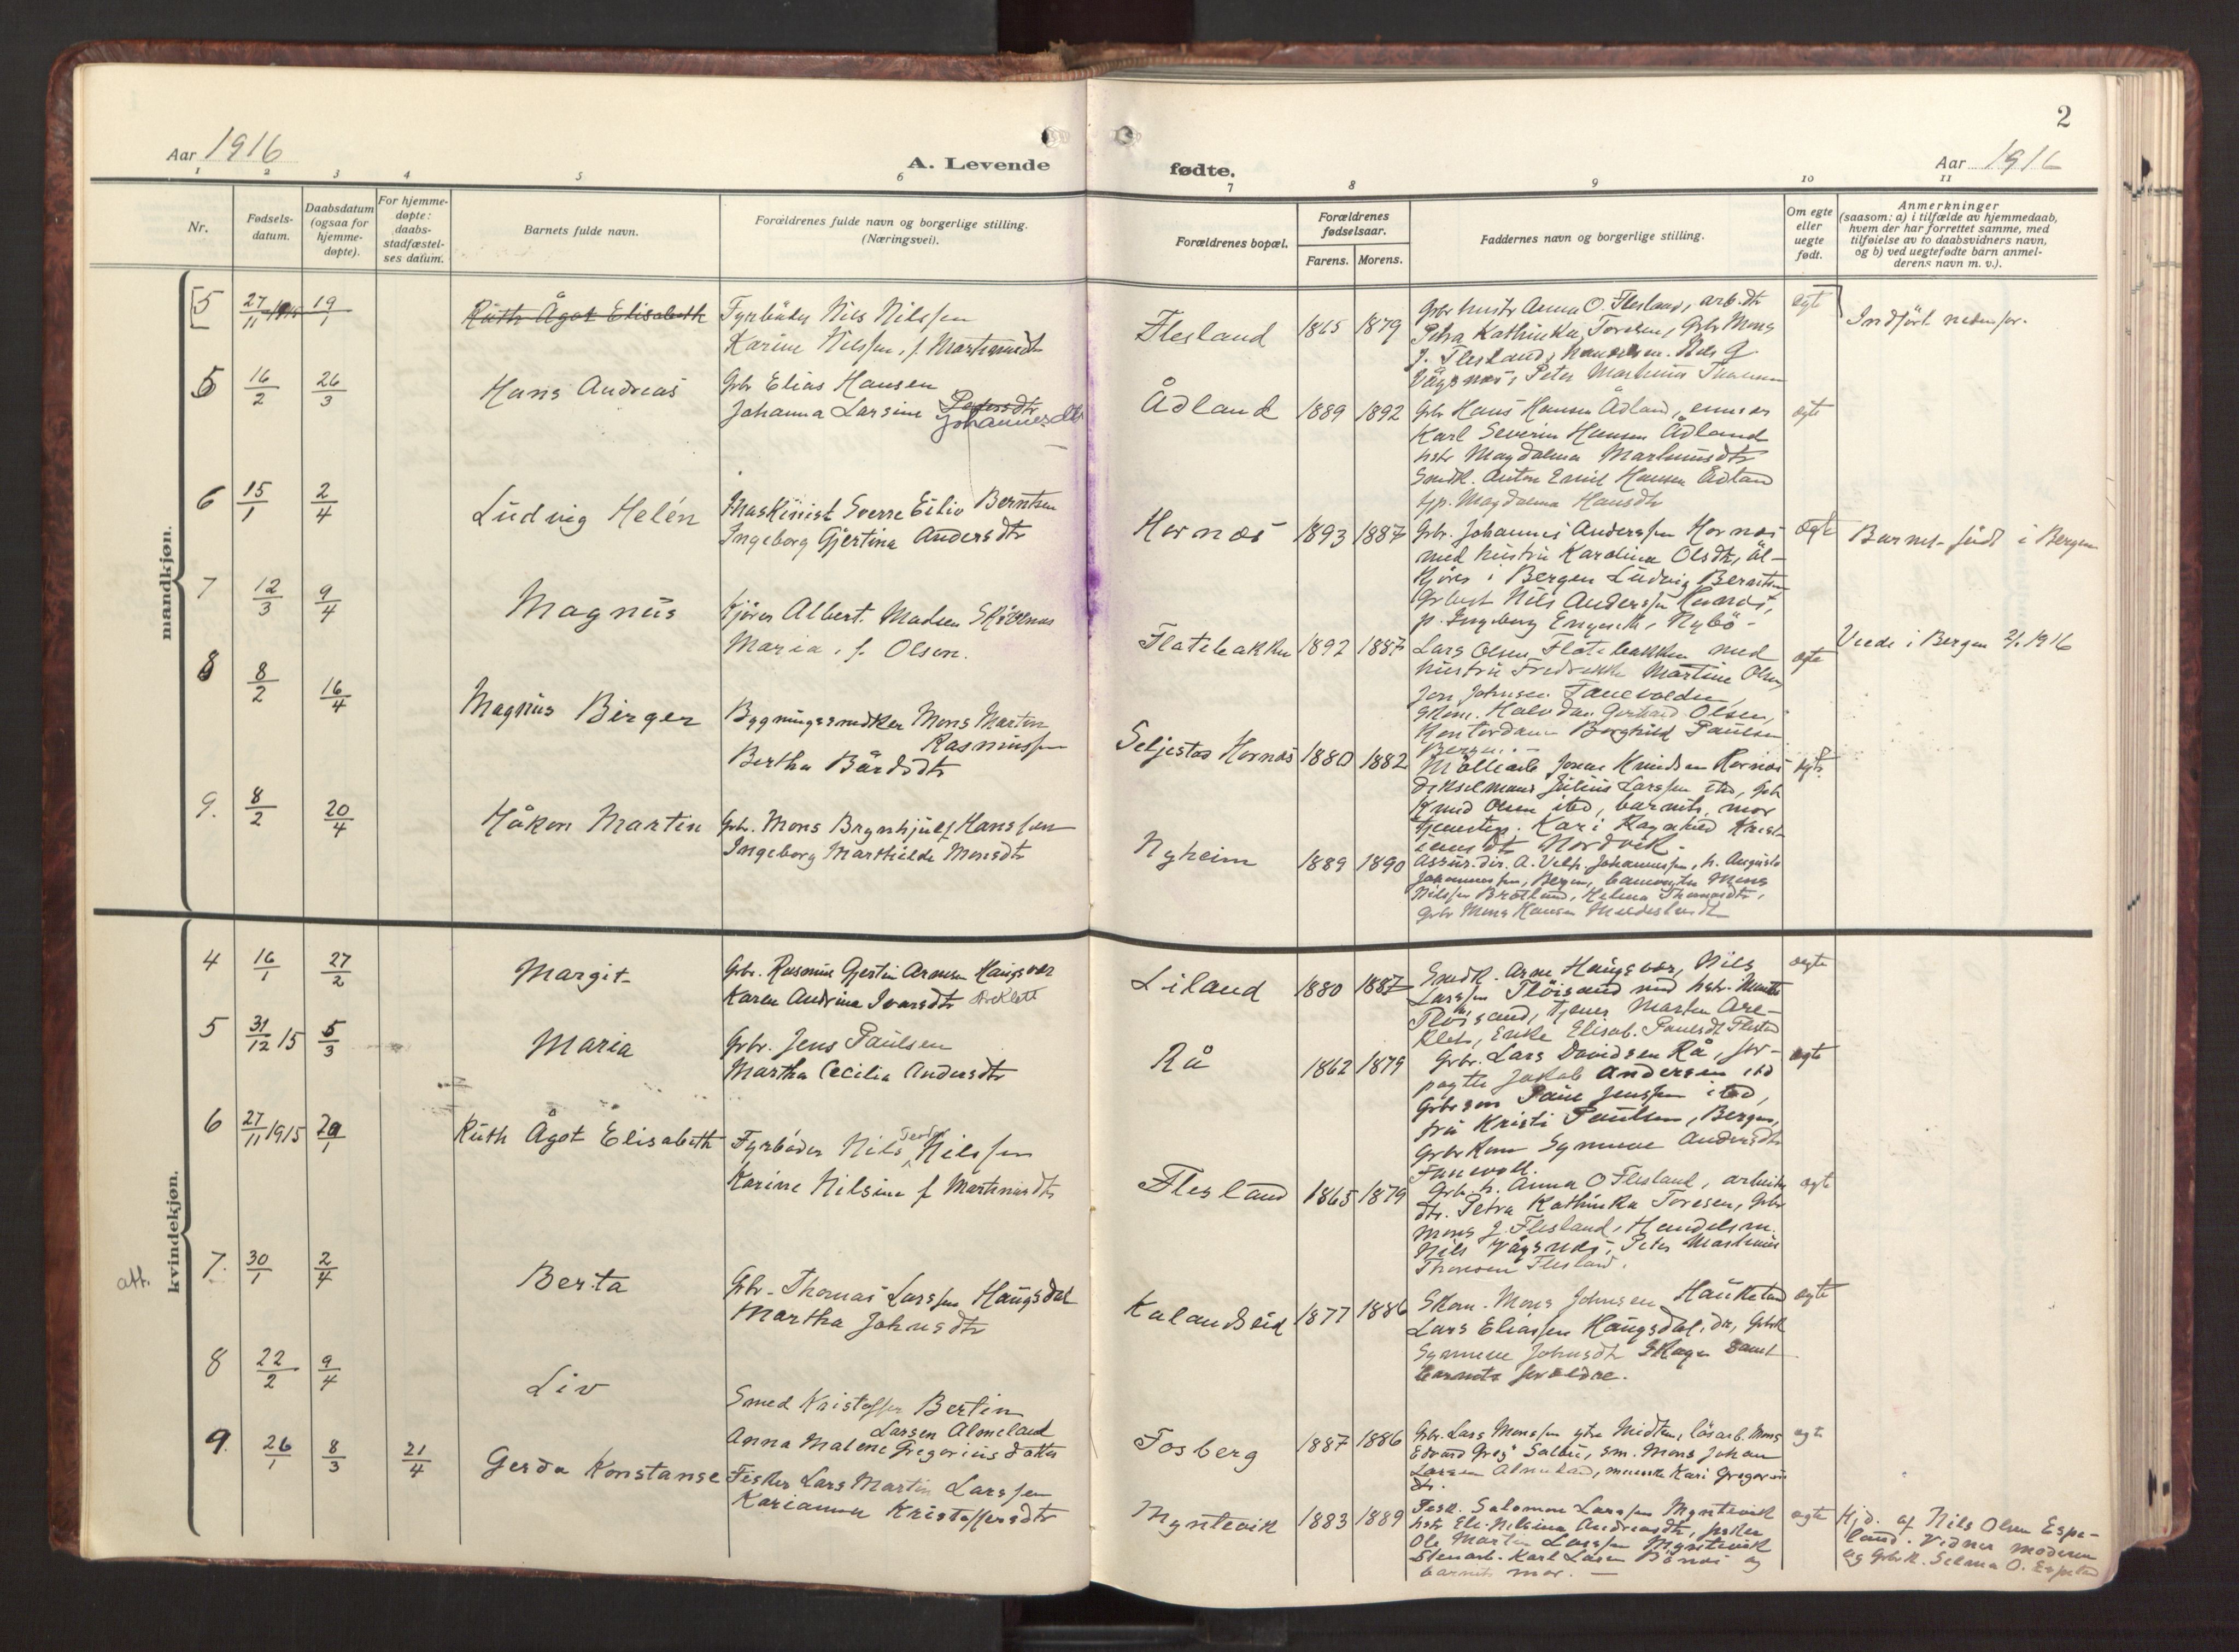 2
Aar 1916
A. Levende
fødte.
Aar 1916
1 2 3 4 5 6 7 8 9 10 11
Nr.
Fødsels-
datum.
Daabsdatum
(ogsaa for
hjemme-
døpte).
For hjemme-
døpte:
daabs-
stadfæstel-
ses datum.
Barnets fulde navn.
Forældrenes fulde navn og borgerlige stilling.
(Næringsvei).
Forældrenes bopæl.
Forældrenes
fødselsaar.
Farens. Morens.
Faddernes navn og borgerlige stilling.
Om egte
eller
uegte
født.
Anmerkninger
(saasom: a) i tilfælde av hjemmedaab,
hvem der har forrettet samme, med
tilføielse av to daabsvidners navn,
og b) ved uegtefødt barn anmel-
derens navn m. v.).
mandkjøn.
5 27/11 1915 19/1 Ruth Ågot Elisabeth Fyrbøder Nils Nilssen
Karine Nilssen, f. Martinusdtr
Flesland 1865 1879 Gbr hustr Anna O. Flesland, arb. dtr
Petra Kathinka Toresen, Gbr Mons
J. Flesland, Nils
Vågsnes, Peter Martinus
egte Indført nedenfor.
5 16/2 26/3 Hans Andreas Gbr Elias Hansen
Johanna Larsine Pedersdtr
Johannesdtr
Ådland 1889 1892 Gbr Hans Hansen Ådland,
Karl Severin Hansen Ådland
hstr Magdalena Martinusdtr
Snedk. Anton Emil Hansen Ådland
Magdalena Hansdtr
egte
6 15/1 2/4 Ludvig Helén Maskinist Sverre Eiliv Berntsen
Ingeborg Gjertina Andersdtr
Hornæs 1893 1887 Gbr. Johannes Anderssen Hornæs
med hustru Karolina Olsdtr,
i Bergen Ludvig Berntsen
Nils Anderssen Hornæs,
p. Ingeborg
egte Barnet født i Bergen
7 12/3 9/4 Magnus Kjører Albert Madsen Skjæsenes
Maria, f. Olsen.
Flatebakken 1892 1887 Lars Olsen Flatebakken med
hustru Fredrikke Martine Olsen,
Jon Johnsen
Halvdan Gerhard Olsen,
Kontordame Borghild Paulsen
Bergen.
egte i Bergen 2/1 1916
8 8/2 16/4 Magnus Birger Bygningssnedker Mons Martin
Rasmussen
Bertha Bårdsdtr
Seljestad Hornæs 1880 1882 Møllearb Knudsen Hornæs
Julius Larssen itsd, Gbr
Knud Olsen itsd, barnets mor
tjenestep. Kari Ragnhild
Nordvik.
egte
9. 8/2 20/4 Håkon Martin Gbr. Mons Brynhjulf Hanssen
Ingeborg Marthilde Monsdtr
Nyheim 1889 1890 Assur. dir. A. Vilh. Johannessen, h. Augusta
Johannessen, Bergen, Mons
Nilssen Brotlund, Helena Thomasdtr,
Gbr Mons Hansen
kvindekjøn.
4 16/1 27/2 Margit Gbr. Rasmus Gjertin Arnesen Haugsvær
Karen Andrina Ivarsdtr
Liland 1880 1887 Snedk. Arne Haugsvær, Nils
Larssen Fløisand med hstr.
Fløisand, tjener Marten Are-
Klett, Enke Elisab. Paulsdtr Flesland
egte
5 31/12 15 5/3 Maria Gbr. Jens Paulsen
Martha Cecilia Andersdtr
Rå 1862 1879 Gbr. Lars Davidsen Rå, for-
pagter Jakob Andersen itsd
Gbr søn Paul Jenssen itsd,
fru Kristi Paulsen, Bergen,
Gbr Kone Synneve Andersdtr
Fanevoll.
egte
6 27/11 1915 20/1 Ruth Ågot Elisabeth Fyrbøder Nils Nilssen
Karine Nilsine f Martinusdtr
Flesland 1865 1879 Gbr. h. Anna O Flesland, arbeider
dtr. Petra Kathinka Toresen, Gbr
Mons J. Flesland, Handelsm.
Nils Vågsnes, Peter Martinus
Thomsen Flesland.
egte
att.
7. 30/1 2/4 Berta Gbr. Thomas Larssen Haugsdal
Martha Johnsdtr
Kalandseid 1877 1886 Skom. Mons Johnsen Hauketad
Lars Eliassen Haugsdal, do, Gbrk
Synneve Johnsdtr Skage samt
barnets forældre.
egte
8 22/2 9/4 Liv Smed Kristoffer Bertin
Larsen Almeland
Anna Malene Gregorius datter
Tosberg 1887 1886 Gbr. Lars Monssen ytre Midtun, løsarb. Mons
Edvard Greg Sælen, sm. Mons Johan
Larsen Almeland, Kari Gregorius
dtr.
egte
9. 26/1 8/3 21/4 Gerda Konstanse Fisker Lars Martin Larssen
Karianna Kristoffersdtr
Myntevik 1883 1889 Fisk. Salomon Larssen Myntevik
hstr Eli Nilsina Andreasdtr, fisker
Ole Martin Larssen Myntevik
Stenarb. Karl Larsen og
barnets mor.
egte Hjd. af Nils Olsen Espe-
land. Vidner moderen
og Gbrk. Selma O. Espeland